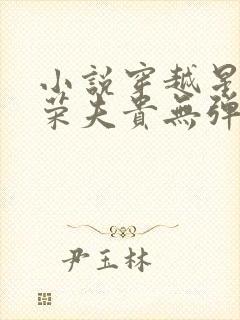 小說穿越星
荣夫貴無彈
尹玉林